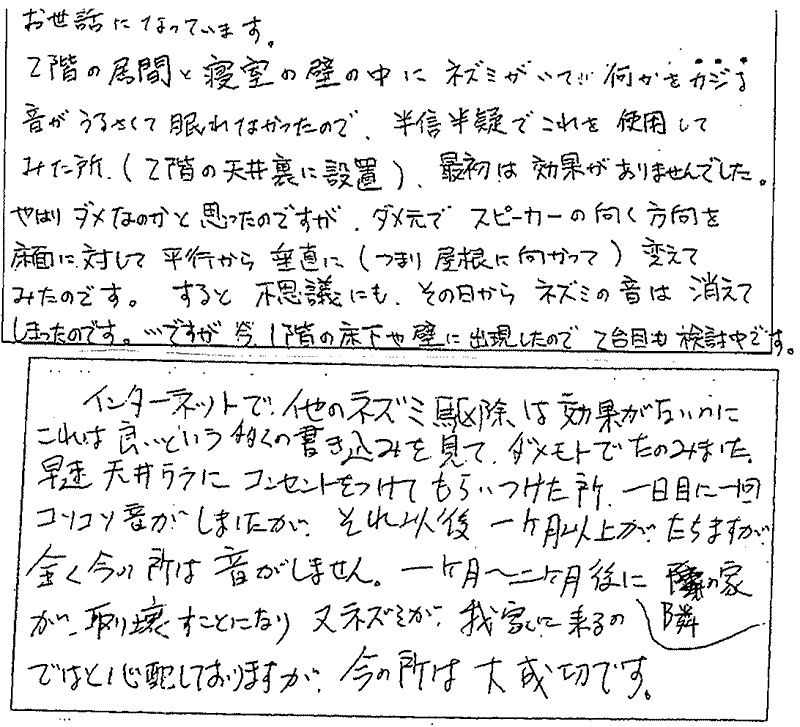 お世話になっています。
2階の居間と寝室の壁の中にネズミがいて… 何かをカジる
音がうるさくて眠れなかったので、半信半疑でこれを使用して
みた所、(2階の天井裏に設置)、最初は効果がありませんでした。
やはりダメなのかと思ったのですが、ダメ元でスピーカーの向く方向を
床面に対して平行から垂直に(つまり屋根に向かって)変えて
みたのです。すると不思議にも、その日からネズミの音は消えて
しまったのです。…ですが今、1階の床下や壁に出現したので2台目も検討中です。
インターネットで、他のネズミ駆除は効果がないのに
これは良いという多くの書き込みを見て、ダメモトでたのみました。
早速天井ウラにコンセントをつけてもらいつけた所、一日目に一回
コソコソ音がしましたが、それ以後一ヶ月以上がたちますが、
全く今の所は音がしません。一ヶ月〜二ヶ月後に隣の家
が、取り壊すことになり又ネズミが、我家に来るの 隣
ではと心配しておりますが、今の所は大成功です。